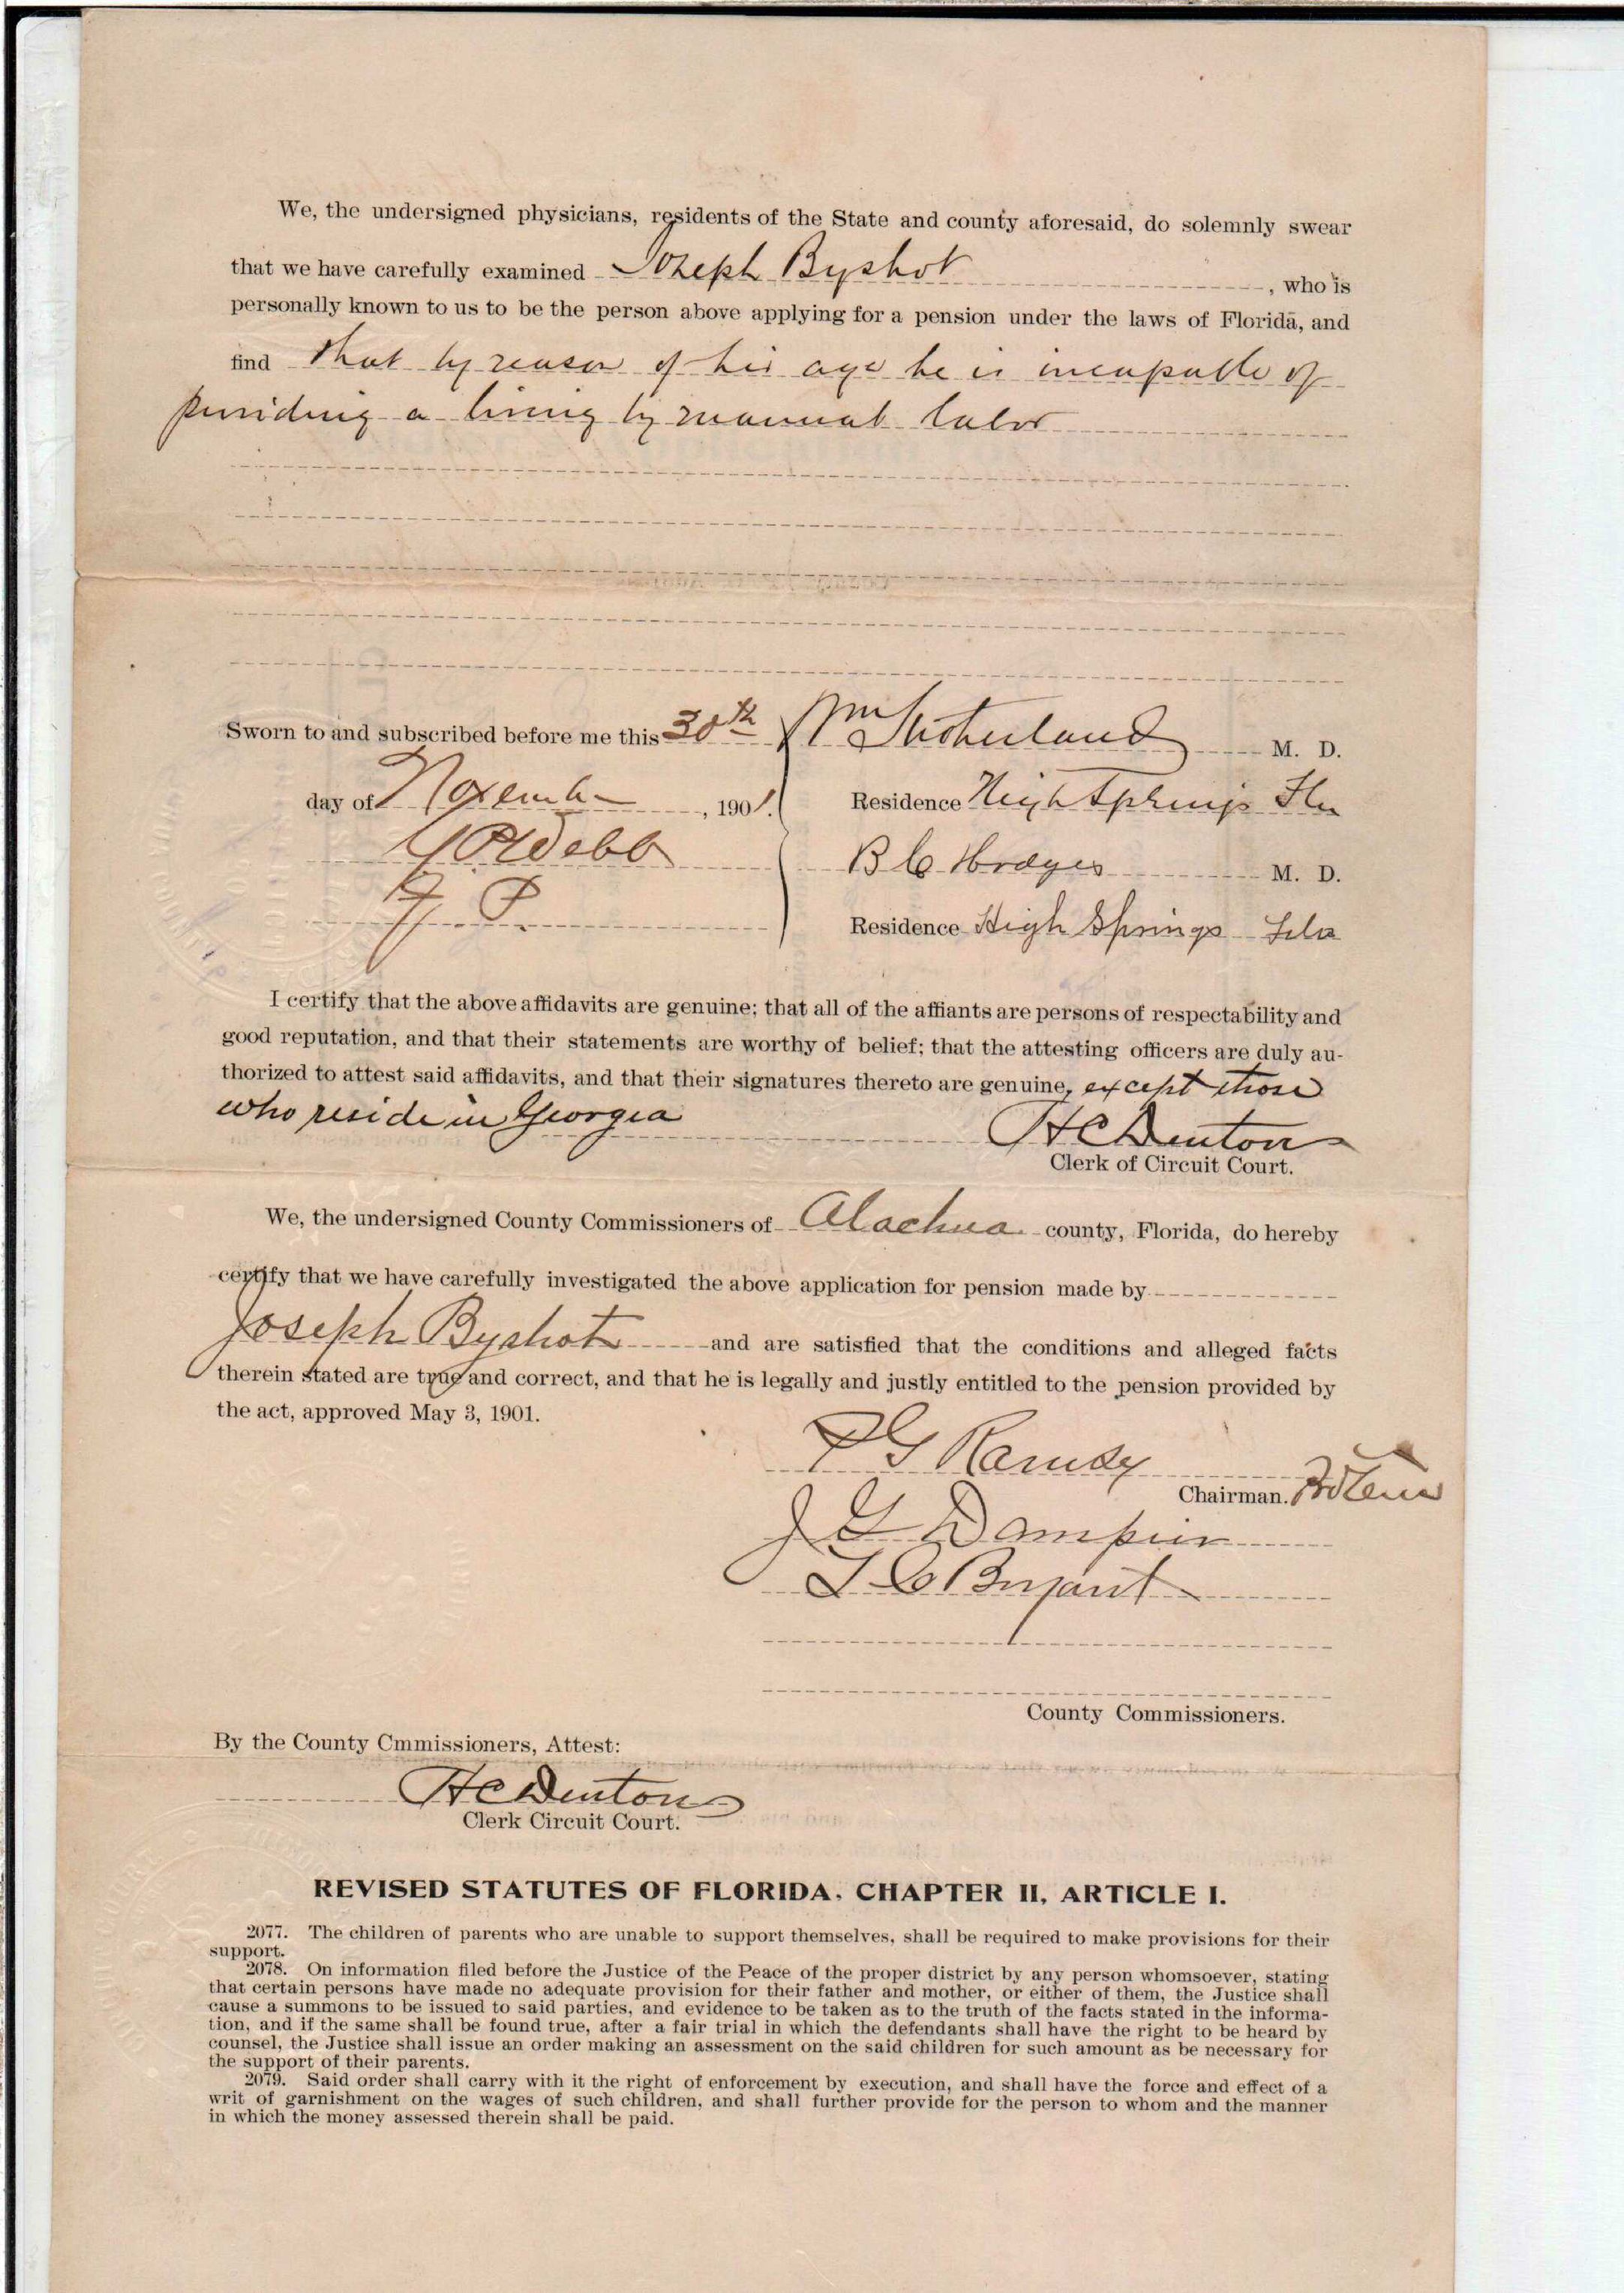 We, the undersigned physicians, residents of the State and county aforesaid, do solemnly swear
that we have carefully examined Joseph Byshot, who is
personally known to us to be the person above applying for a pension under the laws of Florida, and
find that by reason of his age he is incapable of
providing a living by manual labor
Sworn to and subscribed before me this 30th Wm Strotherland M. D.
day of November, 1901. Residence High Springs Fla
Webb B C Hodges M. D.
J. P. Residence High Springs Fla
I certify that the above affidavits are genuine; that all of the affiants are persons of respectability and
good reputation, and that their statements are worthy of belief; that the attesting officers are duly au-
thorized to attest said affidavits, and that their signatures thereto are genuine, except those
who reside in Georgia H C Denton
Clerk of Circuit Court.
We, the undersigned County Commissioners of Alachua county, Florida, do hereby
certify that we have carefully investigated the above application for pension made by
Joseph Byshot and are satisfied that the conditions and alleged facts
therein stated are true and correct, and that he is legally and justly entitled to the pension provided by
the act, approved May 3, 1901.
P G Ramsey
Chairman. Pro Tem
J G Dampier
L C Bryant
County Commissioners.
By the County Cmmissioners, Attest:
H C Denton
Clerk Circuit Court.
REVISED STATUTES OF FLORIDA, CHAPTER II, ARTICLE I.
2077. The children of parents who are unable to support themselves, shall be required to make provisions for their
support.
2078. On information filed before the Justice of the Peace of the proper district by any person whomsoever, stating
that certain persons have made no adequate provision for their father and mother, or either of them, the Justice shall
cause a summons to be issued to said parties, and evidence to be taken as to the truth of the facts stated in the informa-
tion, and if the same shall be found true, after a fair trial in which the defendants shall have the right to be heard by
counsel, the Justice shall issue an order making an assessment on the said children for such amount as be necessary for
the support of their parents.
2079. Said order shall carry with it the right of enforcement by execution, and shall have the force and effect of a
writ of garnishment on the wages of such children, and shall further provide for the person to whom and the manner
in which the money assessed therein shall be paid.